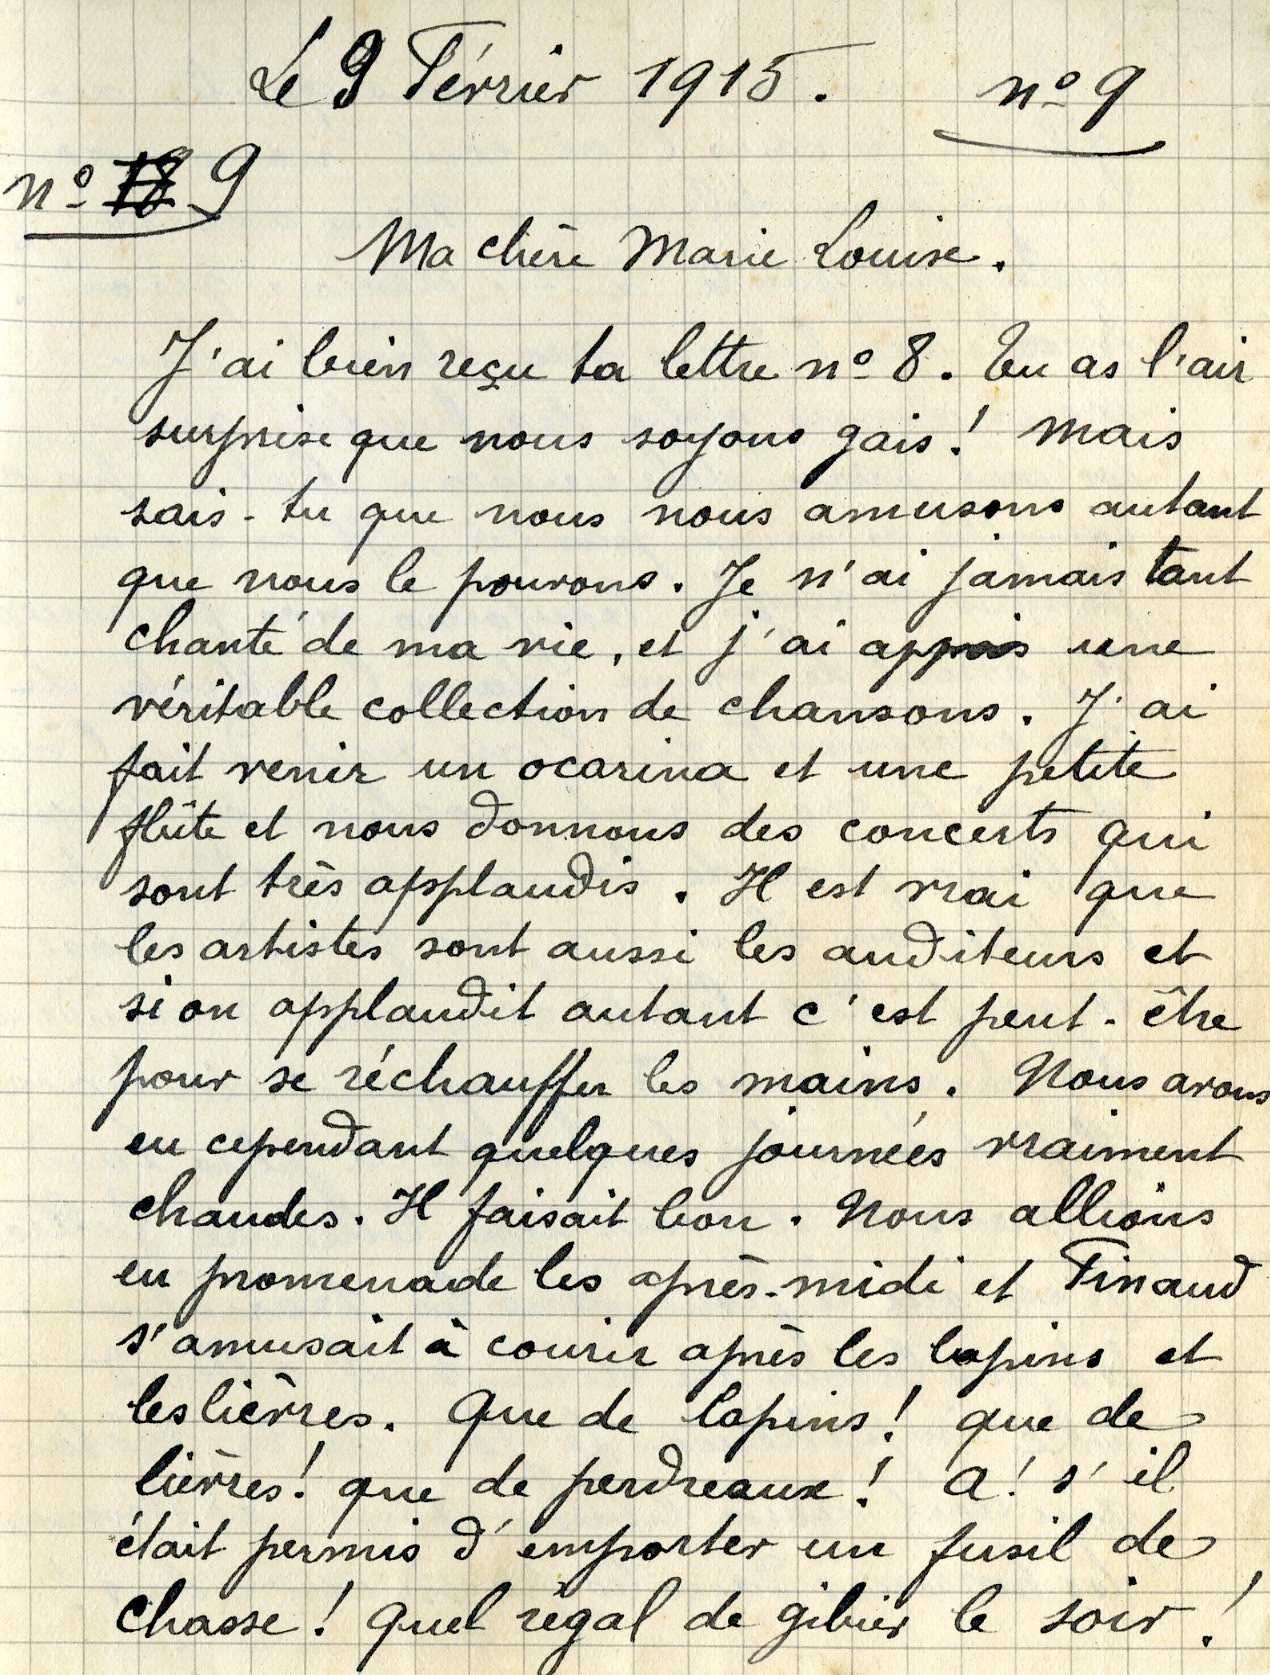 Le 9 Février 1915. nº 9
nº 9
Ma chère Marie Louise.
J'ai bien reçu ta lettre nº 8. Tu as l'air
surprise que nous soyons gais! Mais
sais-tu que nous nous amusons autant
que nous le pouvons. Je n'ai jamais tant
chanté de ma vie, et j'ai appris une
véritable collection de chansons. J'ai
fait venir un ocarina et une petite
flûte et nous donnons des concerts qui
sont très applaudis. Il est vrai que
les artistes sont aussi les auditeurs et
si on applaudit autant c'est peut-être
pour se réchauffer les mains. Nous avons
eu cependant quelques journées vraiment
chaudes. Il faisait bon. Nous allions
en promenade les après-midi et Finaud
s'amusait à courir après les lapins et
les lièvres. Que de lapins! que de
lièvres! que de perdreaux! A! s'il
était permis d'emporter un fusil de
chasse! Quel régal de gibier le soir!